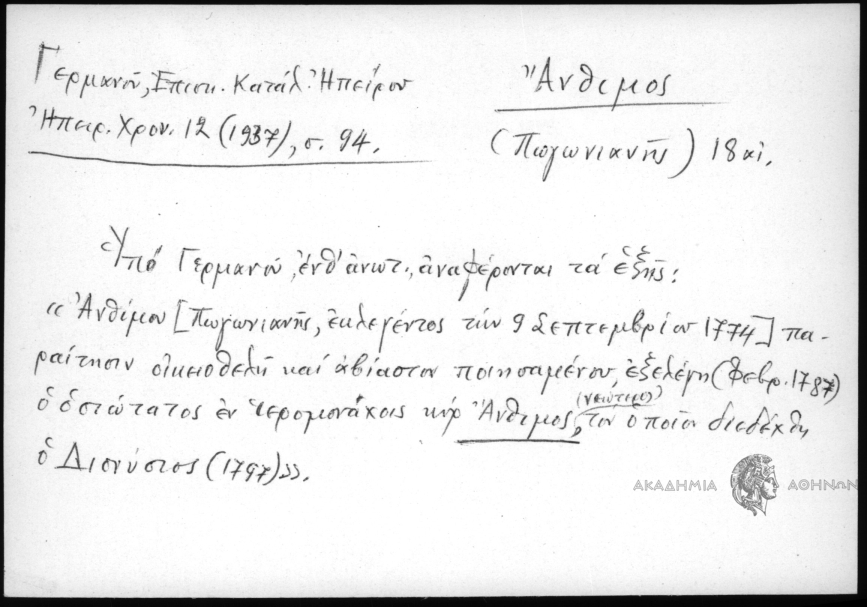 Γερμανοῦ, Ἐπισκ. Κατάλ. Ἠπείρου
Ἠπειρ. Χρον. 12 (1937), σ. 94.
Ἄνθιμος
(Πωγωνιανῆς) 18 αἰ.
Ὑπό Γερμανοῦ, ἐνθ' ἀνωτ., ἀναφέρονται τά ἑξῆς:
«Ἀνθίμου [Πωγωνιανῆς, ἐκλεγέντος τήν 9 Σεπτεμβρίου 1774] πα-
ραίτησιν οἰκειοθελῆ καί ἀβίαστον ποιησαμένου, ἐξελέγη (Φεβρ. 1787)
ὁ ὁσιώτατος ἐν ἱερομονάχοις κύρ Ἄνθιμος, (νεώτερος) τόν ὁποῖον διεδέχθη
ὁ Διονύσιος (1797)».
ΑΚΑΔΗΜΙΑ ΑΘΗΝΩΝ